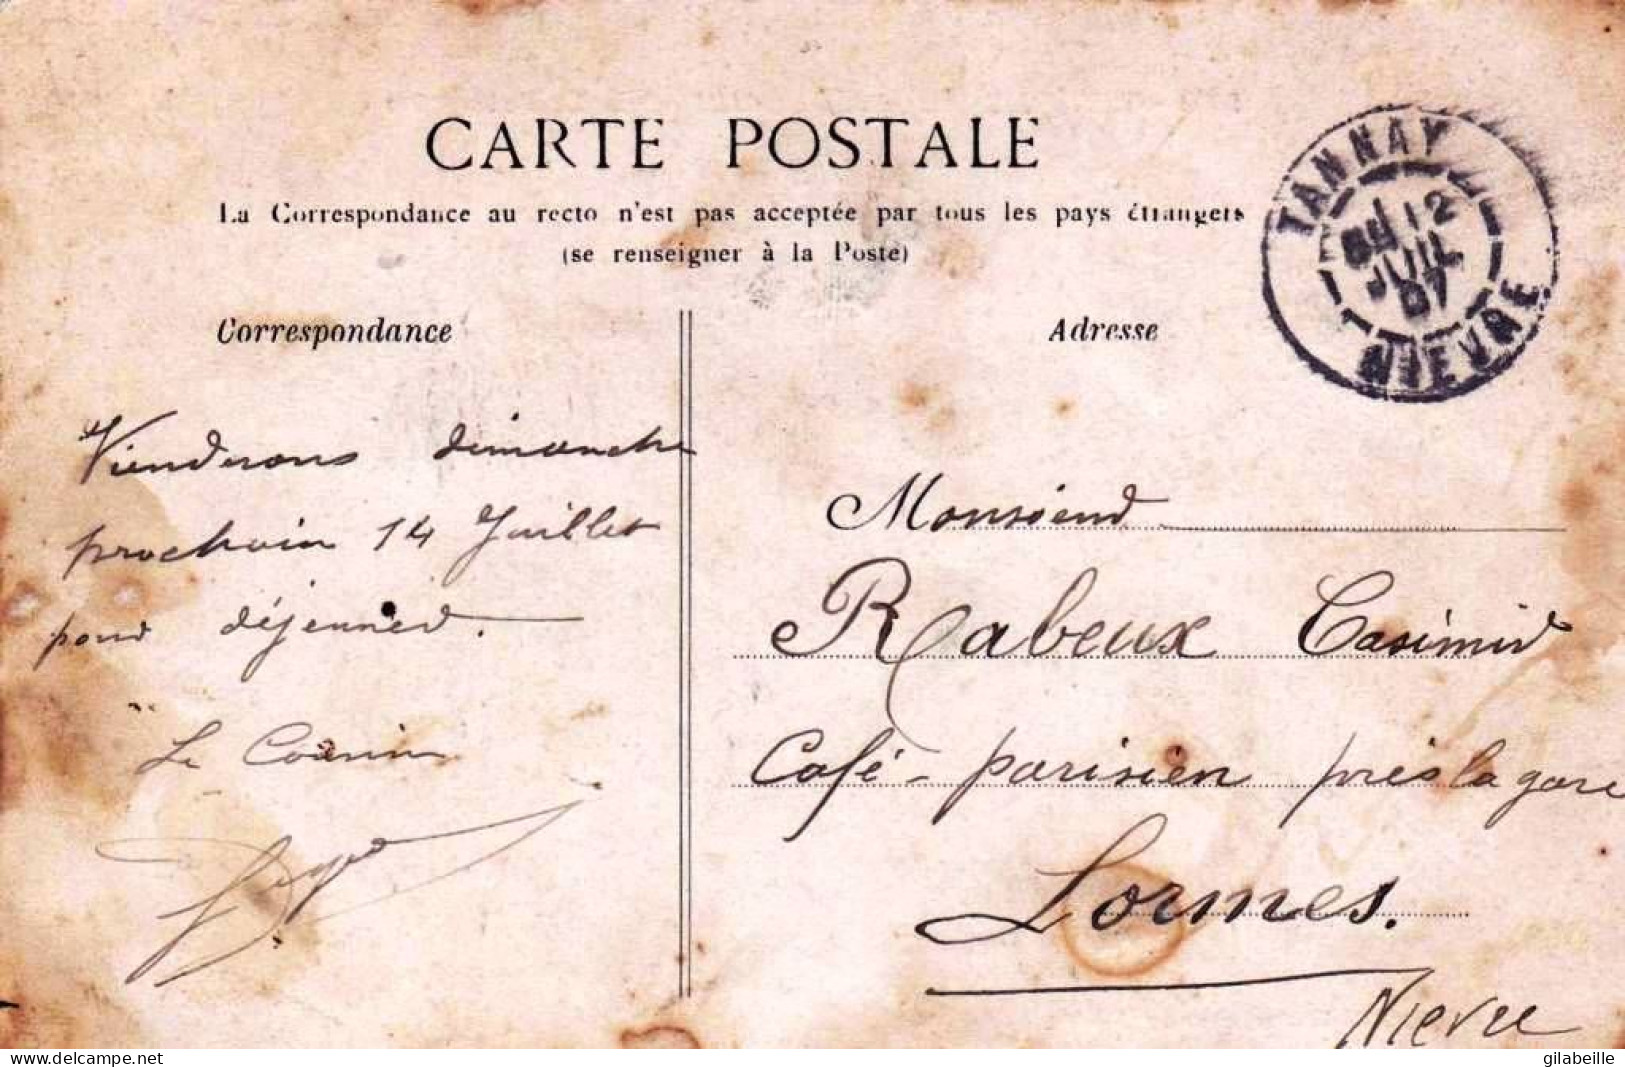 CARTE POSTALE
La Correspondance au recto n'est pas acceptée par tous les pays étrangers
(se renseigner à la Poste)
Correspondance
Adresse
TANNAY
12
JUIL
07
NIEVRE
Viendrons dimanche
prochain 14 Juillet
pour déjeuner.
Le Cousin
Monsieur
Rabeux Casimir
Café-parisien près la gare
Lormes.
Nievre
delcampe.net
gilabeille